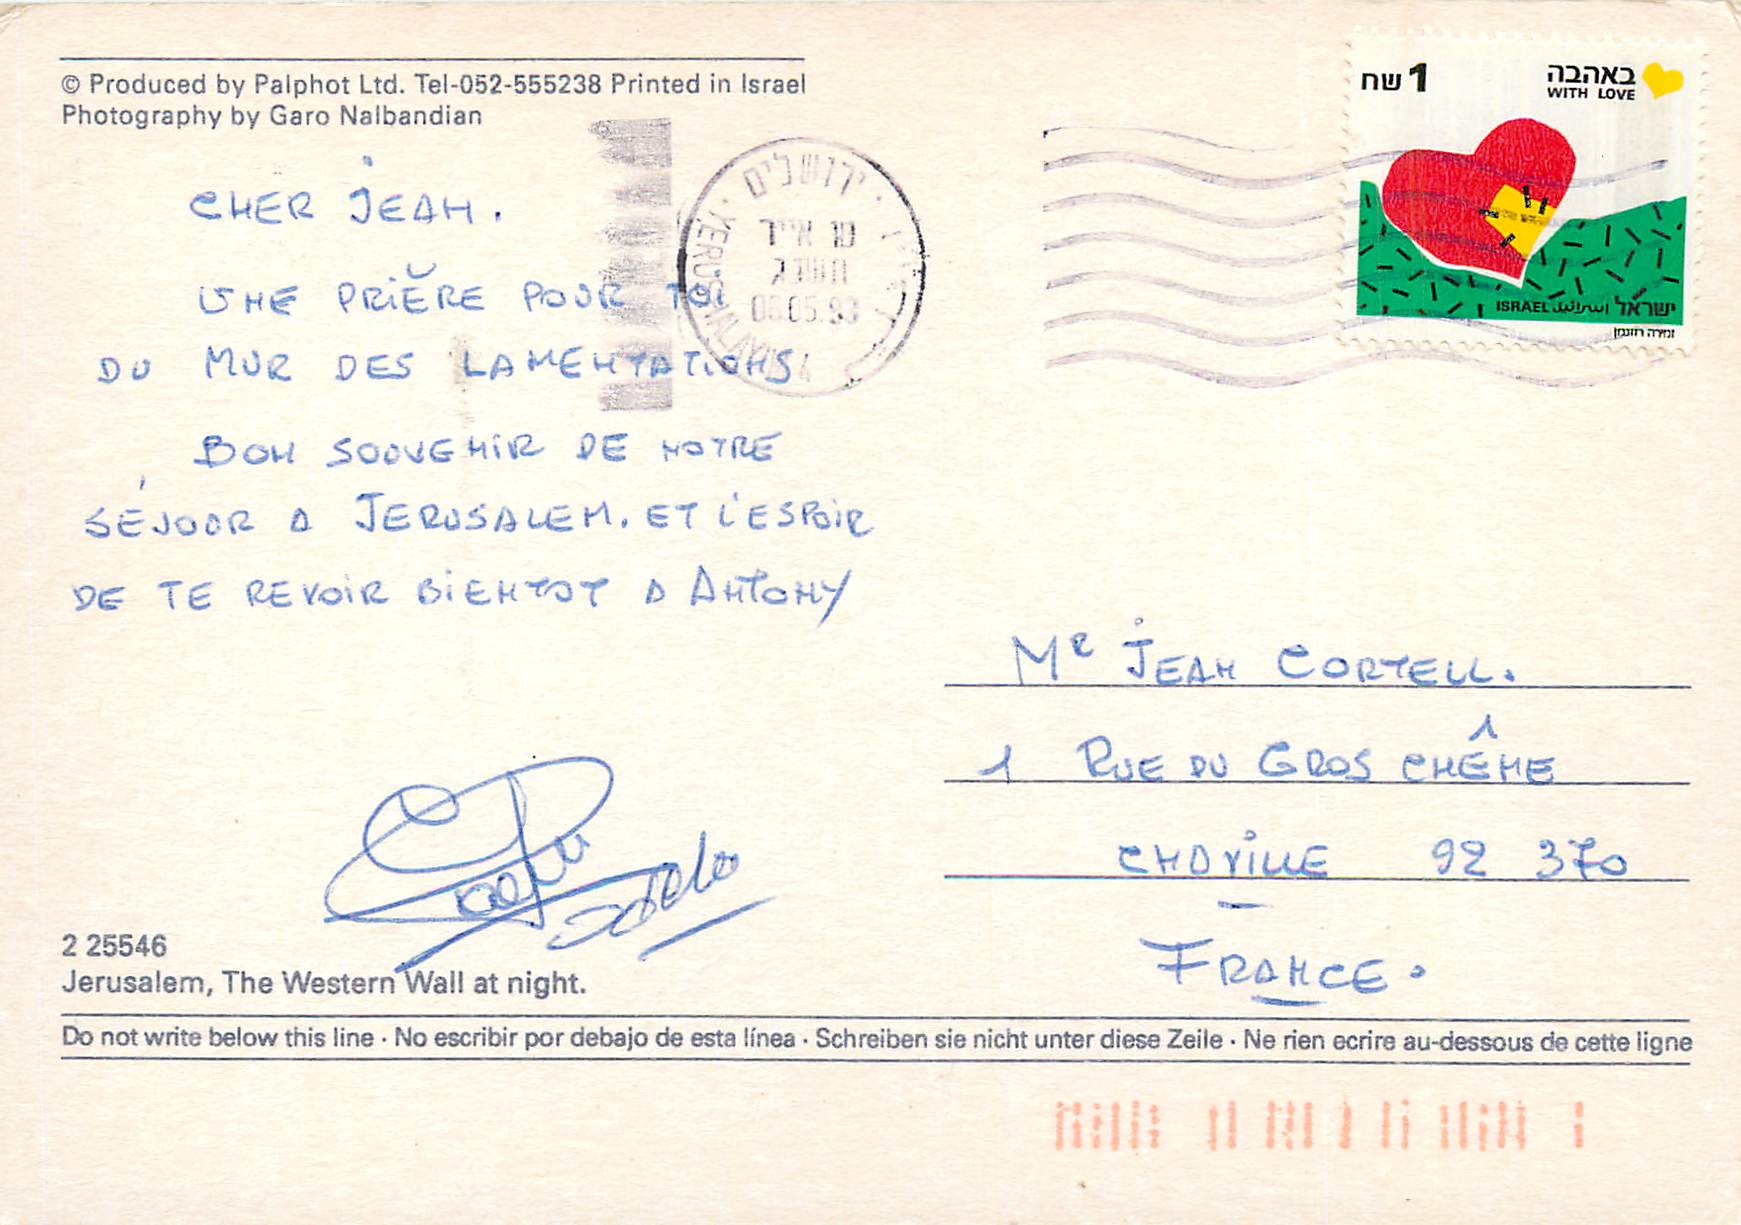 © Produced by Palphot Ltd. Tel-052-555238 Printed in Israel
Photography by Garo Nalbandian
CHER JEAN.
UNE PRIÈRE POUR TOI
DU MUR DES LAMENTATIONS.
BON SOUVENIR DE NOTRE
SÉJOUR A JERUSALEM. ET L'ESPOIR
DE TE REVOIR BIENTOT A ANTONY
2 25546
Jerusalem, The Western Wall at night.
Do not write below this line · No escribir por debajo de esta línea · Schreiben sie nicht unter diese Zeile · Ne rien ecrire au-dessous de cette ligne
ירושלים
YERUSHALAYIM
תשנג
05.93
1 שח
באהבה
WITH LOVE
ISRAEL اسرائيل ישראל
זמירה רוזנמן
MR JEAN CORTELL.
1 RUE DU GROS CHÊNE
CHAVILLE 92 370
FRANCE.